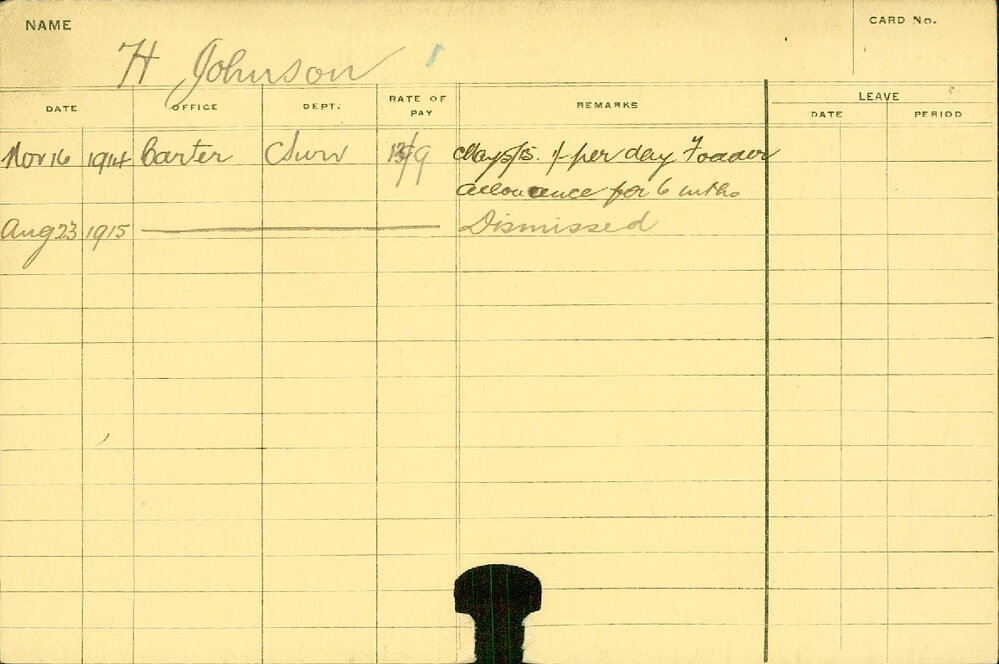 NAME
CARD No.
H Johnson
DATE OFFICE DEPT. RATE OF PAY REMARKS LEAVE
DATE PERIOD
Nov 16 1914 Carter May 5/15. 1/- per day Fodder
allowance for 6 mths
Aug 23 1915 Dismissed